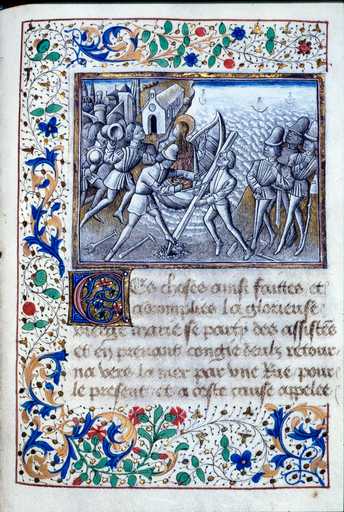 Ces choses ainsi faittes et
acomplies la glorieuse
vierge marie se party des assistẽs
et en prenant congie deulx retour
na vers la mer par une Rue pour
le present et a ceste cause appelee